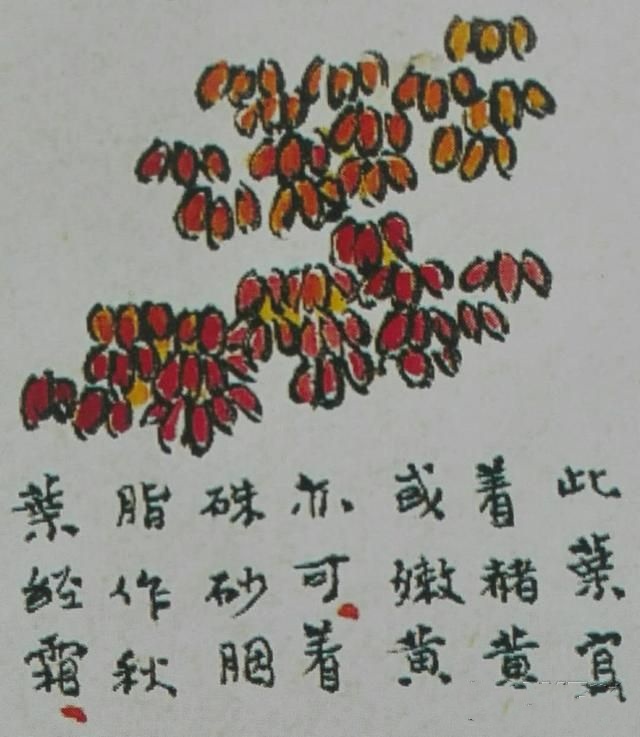 此葉宜
着赭黄
或嫩黄
亦可着
硃砂胭
脂作秋
葉經霜